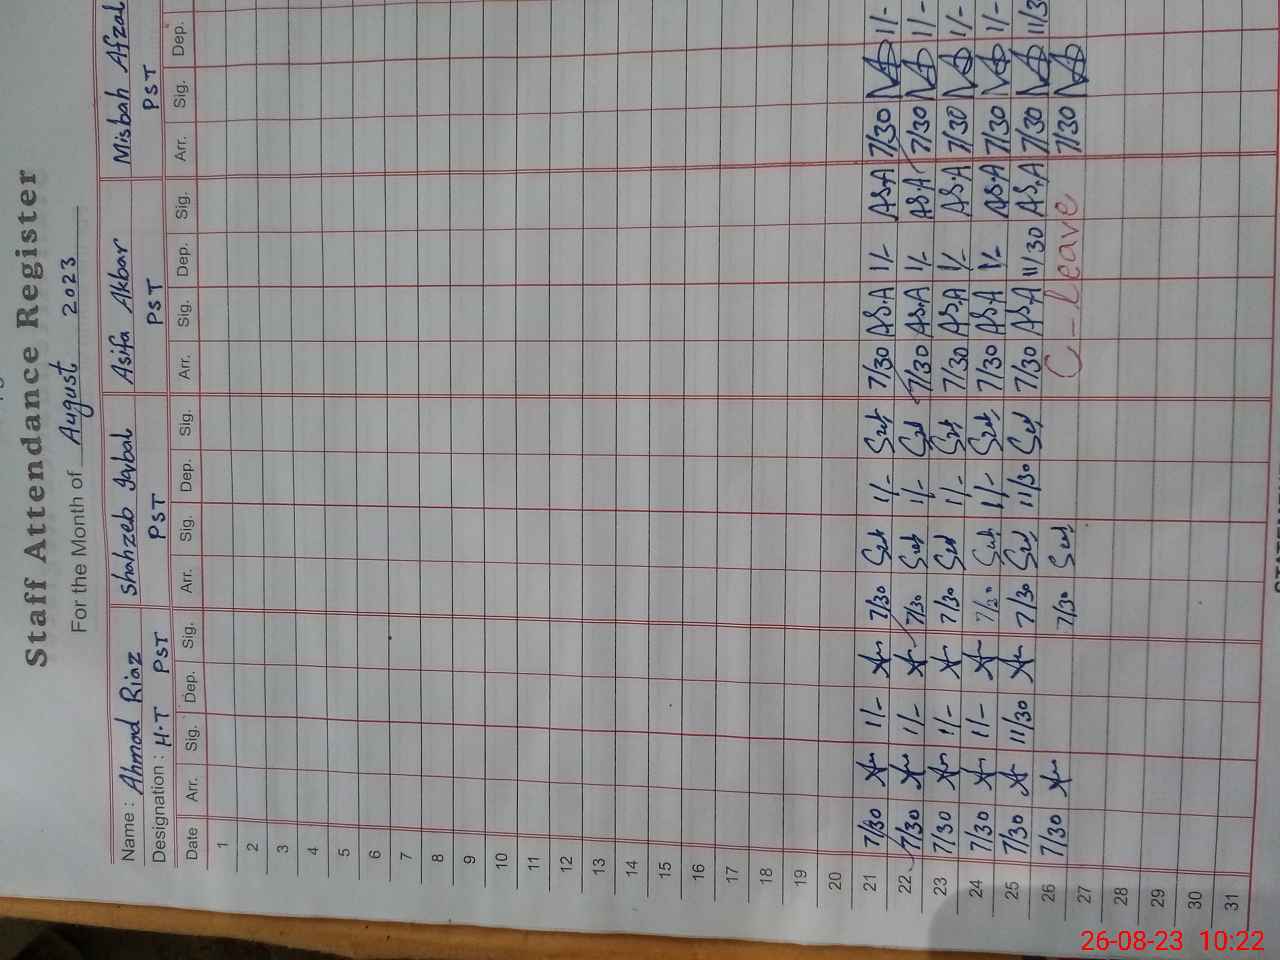 Staff Attendance Register
For the Month of August 2023
Name : Ahmad Riaz Shahzeb Iqbal Asifa Akbar Misbah Afzal
Designation : H.T PST PST PST PST
Date Arr. Sig. Dep. Sig. Arr. Sig. Dep. Sig. Arr. Sig. Dep. Sig. Arr. Sig. Dep.
1
2
3
4
5
6
7
8
9
10
11
12
13
14
15
16
17
18
19
20
21 7/30 1/- 7/30 1/- 7/30 AS.A 1/- AS.A 7/30 1/-
22 7/30 1/- 7/30 1/- 7/30 AS.A 1/- AS.A 7/30 1/-
23 7/30 1/- 7/30 1/- 7/30 AS.A 1/- AS.A 7/30 1/-
24 7/30 1/- 7/30 1/- 7/30 AS.A 1/- AS.A 7/30 1/-
25 7/30 11/30 7/30 11/30 7/30 AS.A 11/30 AS.A 7/30 11/3
26 7/30 7/30 C-leave 7/30
27
28
29
30
31
26-08-23 10:22